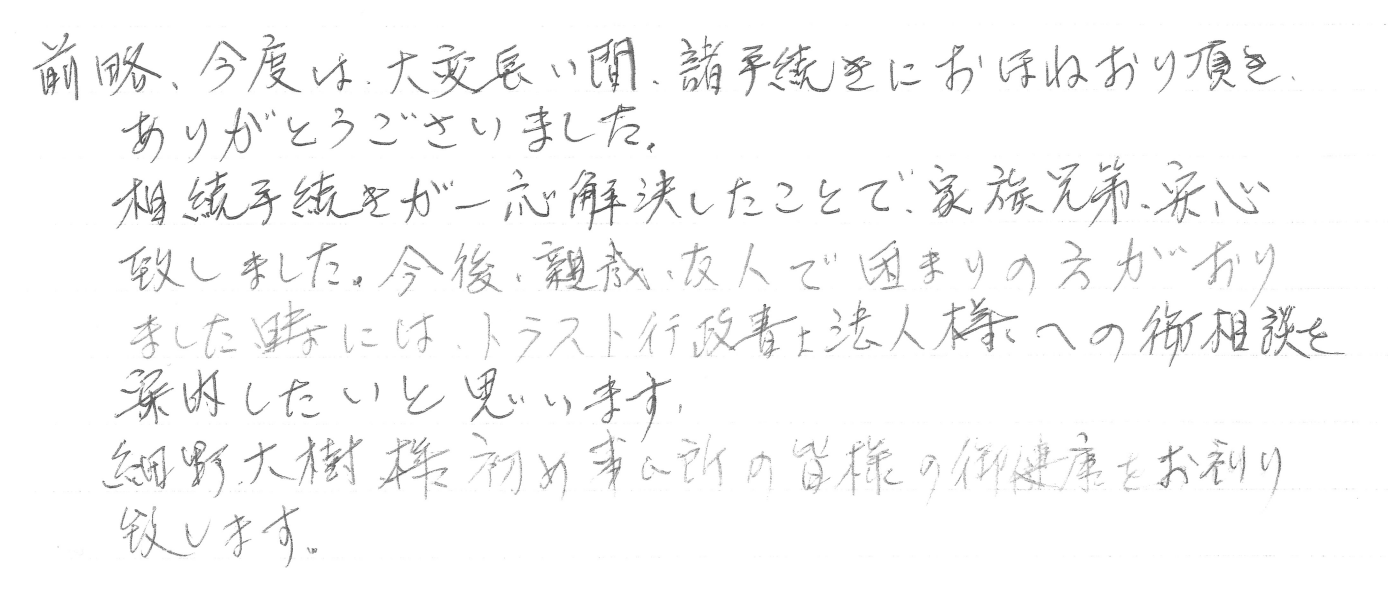 前略、今度は、大変長い間、諸手続きにおほねおり頂き、
ありがとうございました。
相続手続きが一応解決したことで、家族兄弟、安心
致しました。今後、親戚、友人で困まりの方がおり
ました時には、トラスト行政書士法人様への御相談を
案内したいと思います。
細野大樹様初め事ム所の皆様の御健康をお祈り
致します。